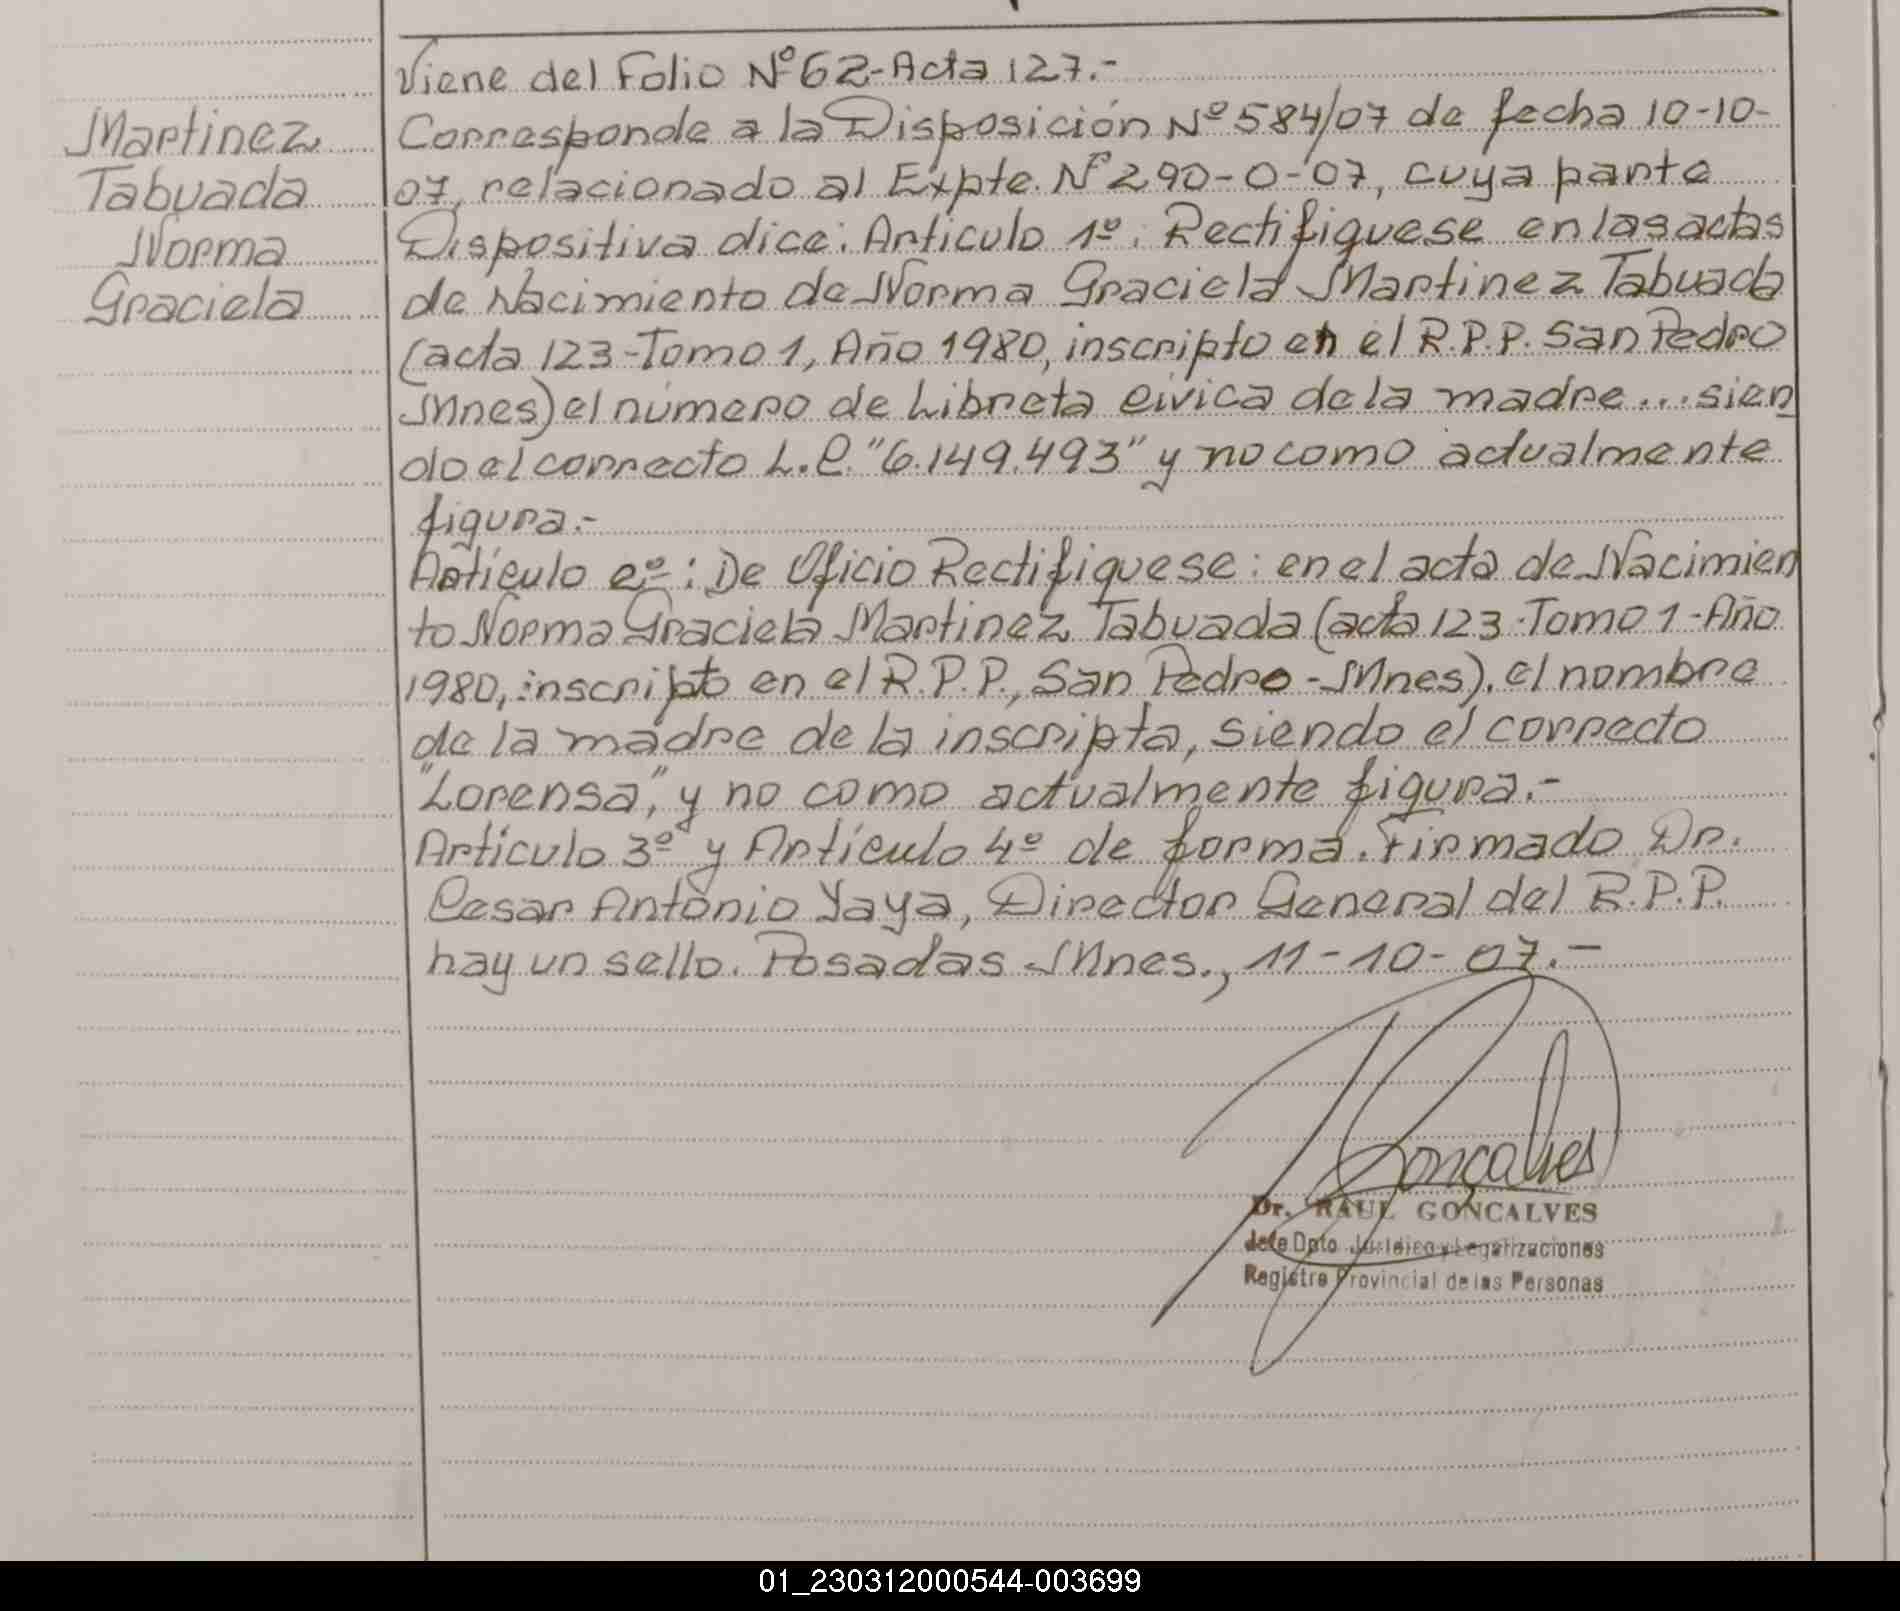 Martinez
Tabuada
Norma
Graciela
Viene del Folio Nº 62-Acta 127.-
Corresponde a la Disposición Nº 584/07 de fecha 10-10-
07, relacionado al Expte. Nº 290-0-07, cuya parte
Dispositiva dice: Articulo 1º: Rectifiquese en las actas
de Nacimiento de Norma Graciela Martinez Tabuada
(acta 123-Tomo 1, Año 1980, inscripto en el R.P.P. San Pedro
Mnes) el número de Libreta Civica de la madre...sien
do el correcto L.C. "6.149.493" y no como actualmente
figura.-
Artículo 2º: De Oficio Rectifiquese: en el acta de Nacimien
to Norma Graciela Martinez Tabuada (acta 123-Tomo 1-Año
1980, inscripto en el R.P.P., San Pedro-Mnes), el nombre
de la madre de la inscripta, siendo el correcto
"Lorensa", y no como actualmente figura.-
Artículo 3º y Artículo 4º de forma. Firmado Dr.
Cesar Antonio Yaya, Director General del R.P.P.
hay un sello. Posadas Mnes., 11-10-07.-
Gonçalves
Dr. RAUL GONÇALVES
Jefe Dpto Jurídico y Legalizaciones
Registro Provincial de las Personas
01_230312000544-003699